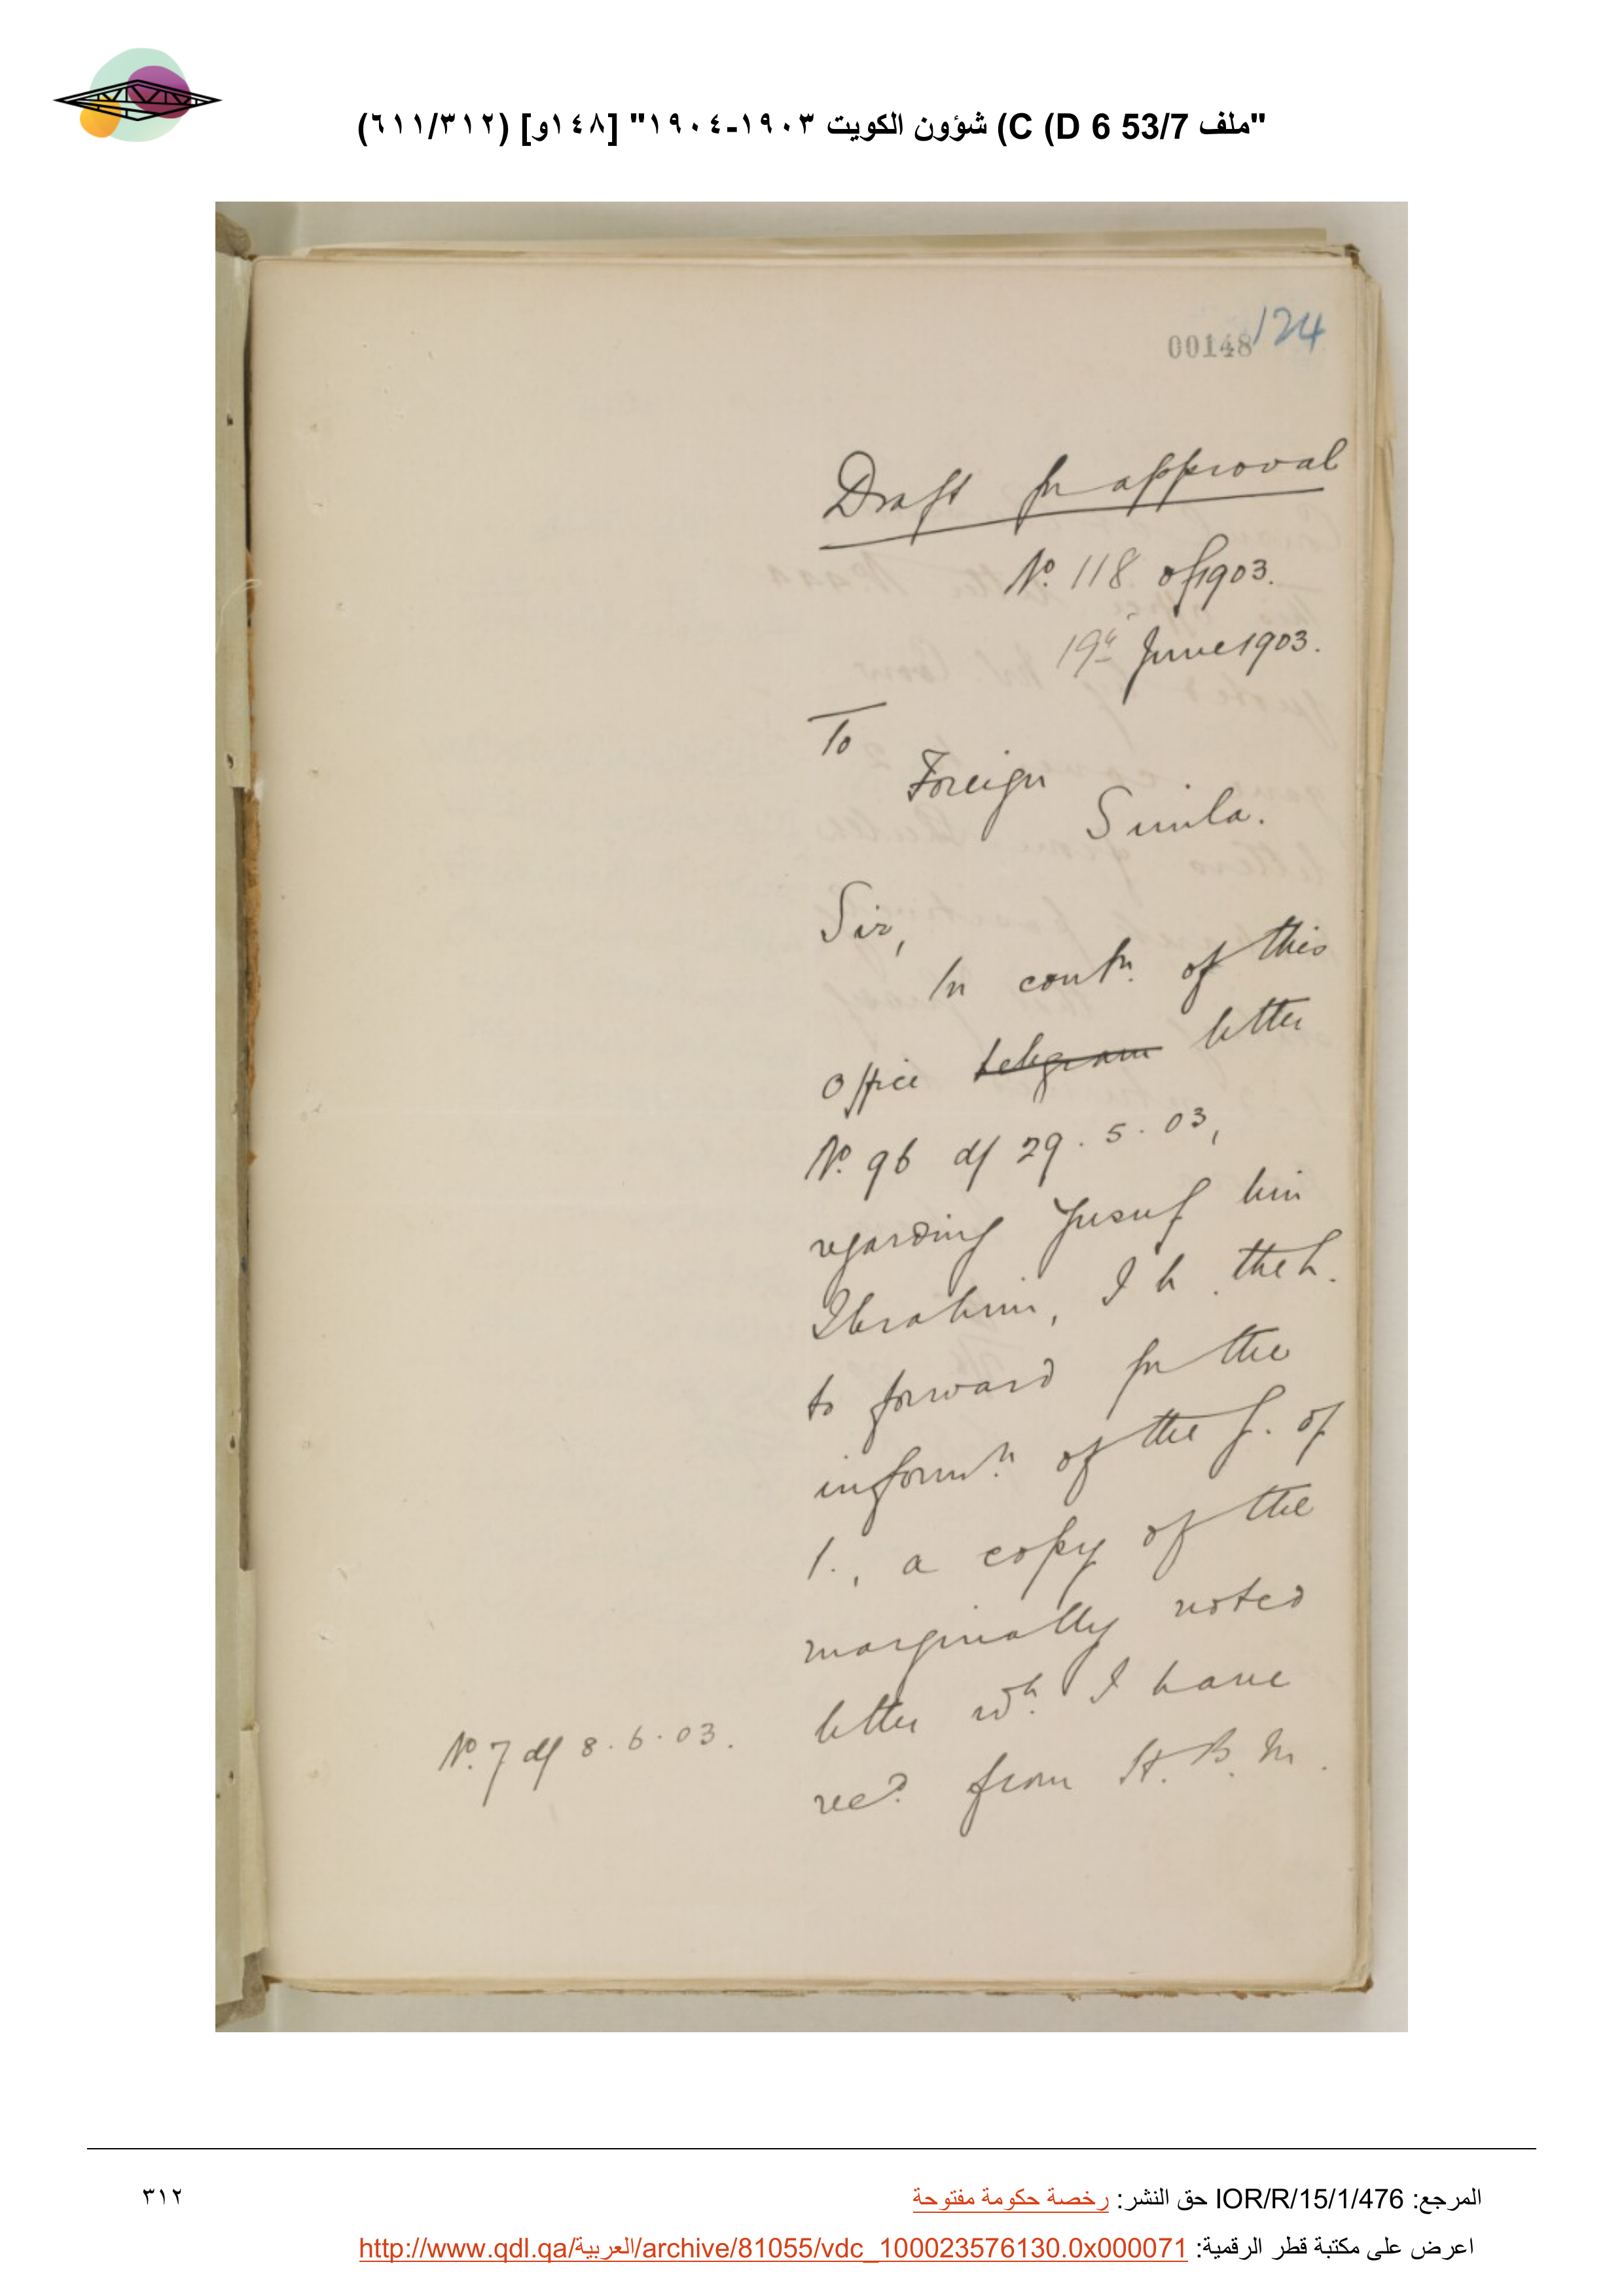 "ملف 53/7 C (D 6) شؤون الكويت ١٩٠٣-١٩٠٤" [١٤٨و] (٦١١/٣١٢)
00148 124
Draft for approval
No. 118 of 1903.
19th June 1903.
To
Foreign
Simla.
Sir,
In contn. of this
office telegram letter
No. 96 d/ 29.5.03,
regarding Yusuf bin
Ibrahim, I h. the h.
to forward for the
informn. of the G. of
I., a copy of the
marginally noted
letter wh. I have
No. 7 d/ 8.6.03.
recd. from H.B.M.
المرجع: IOR/R/15/1/476 حق النشر: رخصة حكومة مفتوحة
٣١٢
اعرض على مكتبة قطر الرقمية: http://www.qdl.qa/العربية/archive/81055/vdc_100023576130.0x000071